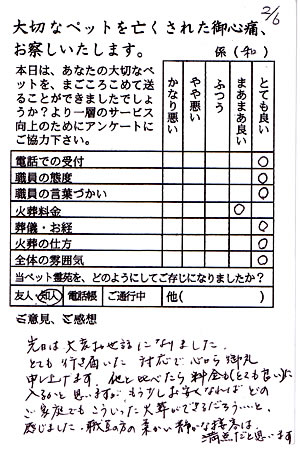 2/6
大切なペットを亡くされた御心痛、
お察しいたします。 係(和)
本日は、あなたの大切なペットを、まごころこめて送ることができましたでしょうか?より一層のサービス向上のためにアンケートにご協力下さい。
かなり悪い
やや悪い
ふつう
まあまあ良い
とても良い
電話での受付 ○
職員の態度 ○
職員の言葉づかい ○
火葬料金 ○
葬儀・お経 ○
火葬の仕方 ○
全体の雰囲気 ○
当ペット霊苑を、どのようにしてご存じになりましたか?
友人・知人 電話帳 ご通行中 他( )
ご意見、ご感想
先日は大変お世話になりました。
とても行き届いた対応で心から御礼
申し上げます。他と比べたら料金も(とても良い)に
入るかと思いますが、もう少しお安くなればどの
ご家庭でもこういった火葬ができるだろう…と、
感じました。職員の方の柔かい静かな接客は
満点だと思います